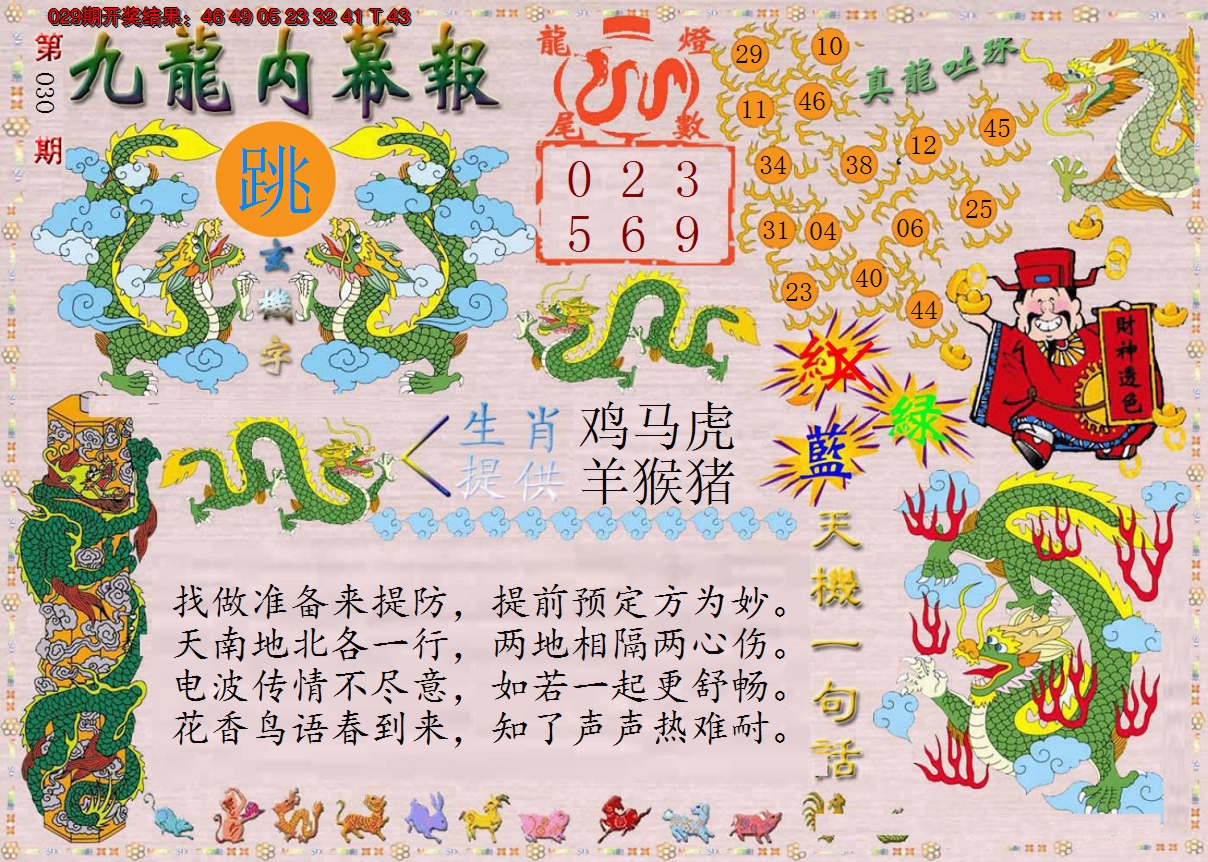 029期开奖结果：46 49 05 23 32 41 T 43
第
030
期
九龍内幕報
跳
玄
機
字
龍
燈
尾
數
0 2 3
5 6 9
真龍吐珠
29
10
11
46
34
38
12
45
31
04
06
25
23
40
44
財神透色
紅
綠
藍
生肖
提供
鸡马虎
羊猴猪
天機一句话
找做准备来提防，提前预定方为妙。
天南地北各一行，两地相隔两心伤。
电波传情不尽意，如若一起更舒畅。
花香鸟语春到来，知了声声热难耐。